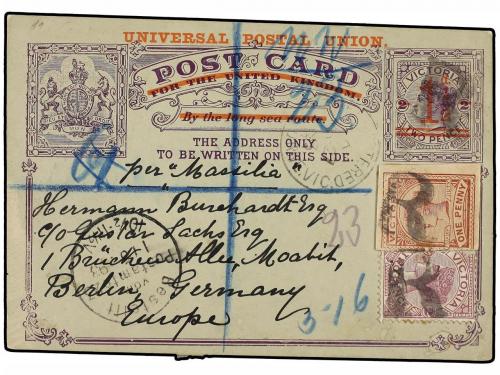 UNIVERSAL POSTAL UNION.
POST CARD
FOR THE UNITED KINGDOM
By the long sea route.
THE ADDRESS ONLY
TO BE WRITTEN ON THIS SIDE.
VICTORIA
2 2
TWO PENCE
per "Massilia"
Hermann Burchardt Esq
c/o Gustav Sachs Esq
1 Brücken Allee, Moabit,
Berlin Germany
Europe
23
3-16
ONE PENNY
VICTORIA